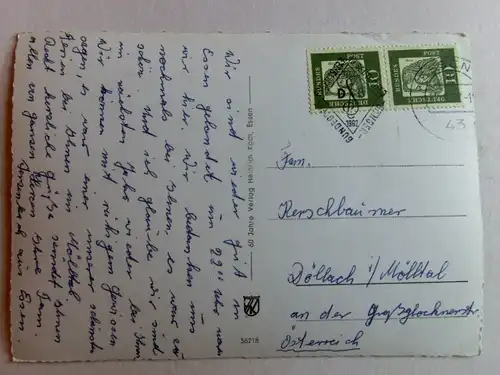 Wir sind wieder gut in
Essen gelandet um 22 Uhr
wir hier. Wir bedanken uns
nochmals bei Ihnen, es war
sehr Und ich glaube wir sind
im nächsten Jahr wieder bei Ihnen
Wir können mit ruhigem Gewissen
sagen, es war einer unserer schönsten
Ferien bei Ihnen im Mölltal
Recht herzliche Grüße sendet Ihnen
allen von ganzem Herzen Ihre Fam.
aus Essen.
60 Jahre Verlag Heinrich Koch, Essen
36218
DEUTSCHE
BUNDESPOST
10
DEUTSCHE
BUNDESPOST
10
43
Fam.
Kerschbaumer
Döllach i/Mölltal
an der Großglocknerstr.
Österreich